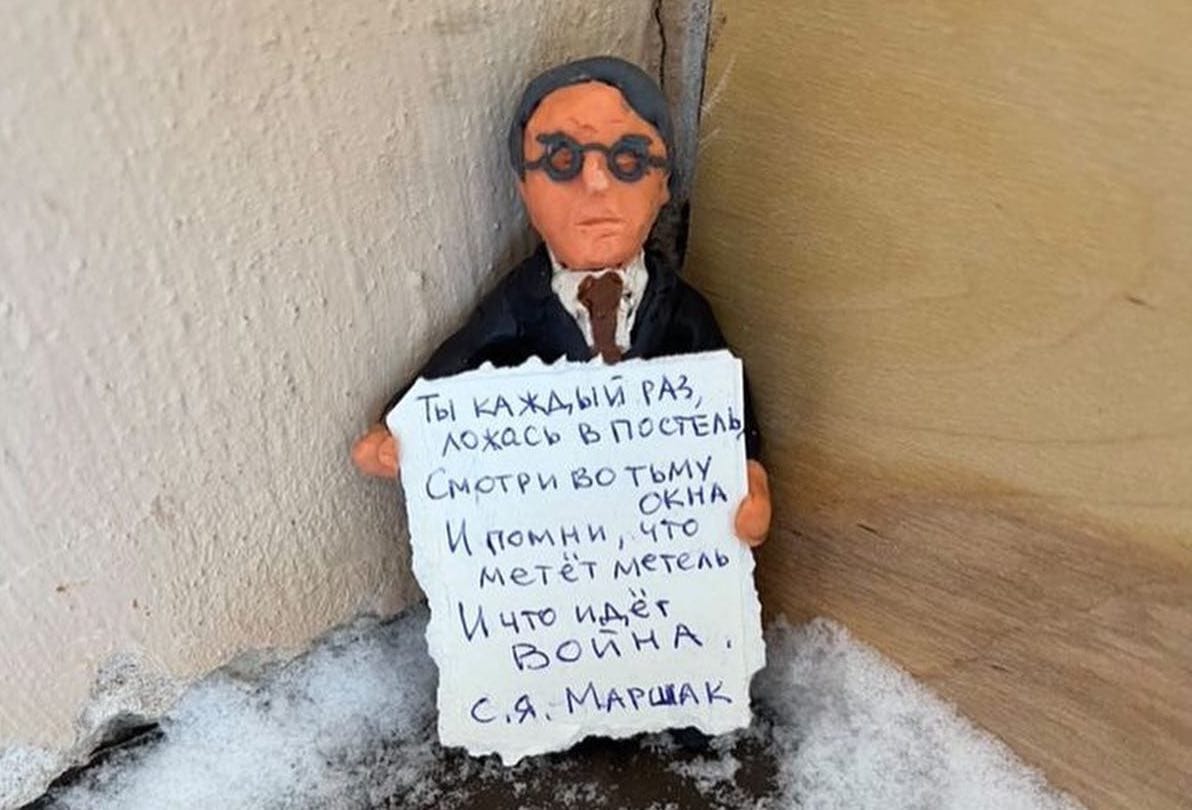 Ты каждый раз,
ложась в постель,
Смотри во тьму
окна
И помни, что
метёт метель
И что идёт
война.
С.Я. Маршак